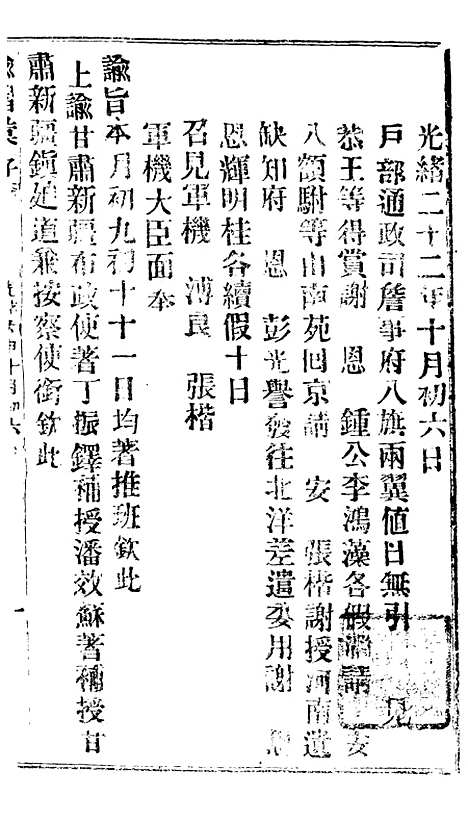 光緒二十二年十月初六日
戶部通政司詹事府八旗兩翼值日無引見
恭王等得賞謝 恩 鍾公李鴻藻各假滿請 安
八額駙等由南苑回京請 安 張楷謝授河南遺
缺知府 恩 彭光譽發往北洋差遣委用謝 恩
恩輝明桂各續假十日
召見軍機 溥良 張楷
軍機大臣面奉
諭旨本月初九初十十一日均著推班欽此
上諭甘肅新疆布政使著丁振鐸補授潘效蘇著補授甘
肅新疆鎮迪道兼按察使銜欽此